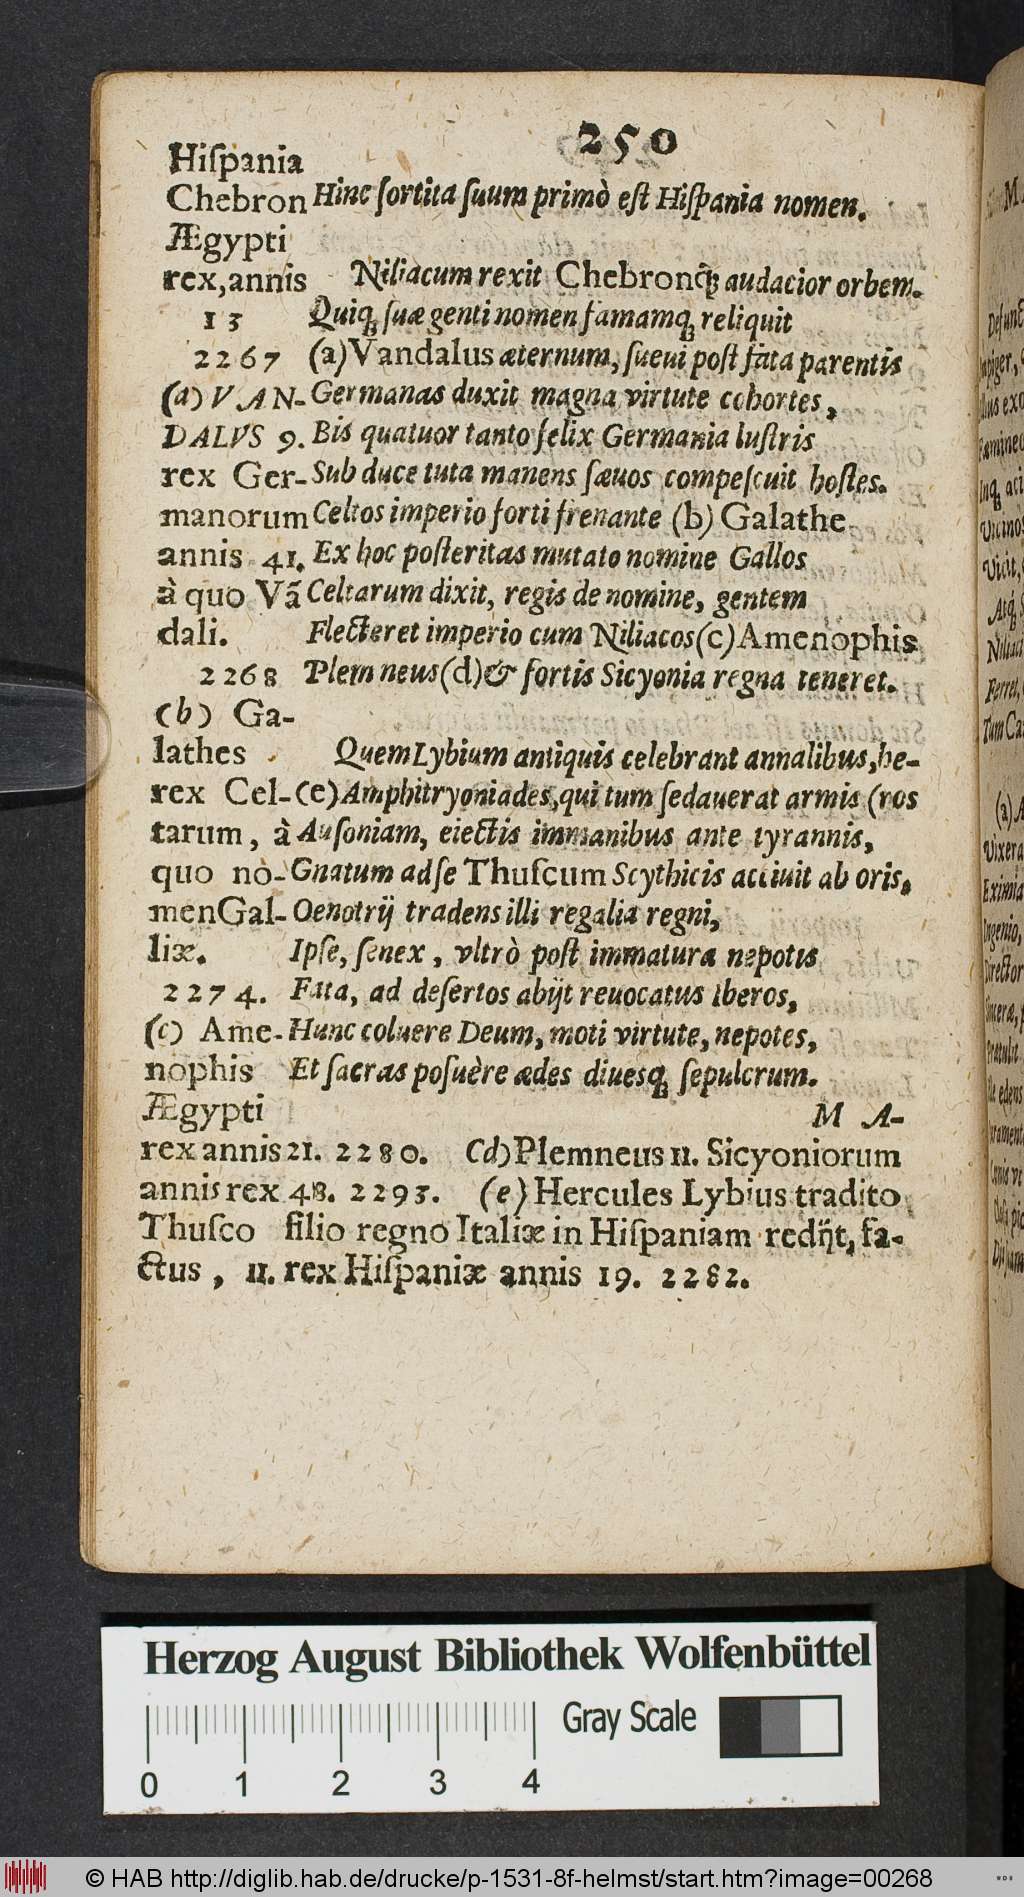 250
Hiſpania
Chebron
Ægypti
rex, annis
13
2267
(a) VAN-
DALVS 9.
rex Ger-
manorum
annis 41.
à quo Vã
dali.
2268
(b) Ga-
lathes
rex Cel-
tarum, à
quo no-
men Gal-
liæ.
2274.
(c) Ame-
nophis
Ægypti
Hinc ſortita ſuum primò eſt Hiſpania nomen.
Niliacum rexit Chebronq́ꝫ audacior orbem.
Quiqꝫ ſuæ genti nomen famamqꝫ reliquit
(a) Vandalus æternum, ſueui poſt fata parentis
Germanas duxit magna virtute cohortes,
Bis quatuor tanto felix Germania luſtris
Sub duce tuta manens ſæuos compeſcuit hoſtes.
Celtos imperio forti frenante (b) Galathe
Ex hoc poſteritas mutato nomine Gallos
Celtarum dixit, regis de nomine, gentem
Flecteret imperio cum Niliacos (c) Amenophis
Plemneus (d) & fortis Sicyonia regna teneret.
Quem Lybium antiquis celebrant annalibus, he-
(e) Amphitryoniades, qui tum ſedauerat armis (ros
Auſoniam, eiectis immanibus ante tyrannis,
Gnatum ad ſe Thuſcum Scythicis acciuit ab oris,
Oenotrij tradens illi regalia regni,
Ipſe, ſenex, vltrò poſt immatura nepotis
Fata, ad deſertos abijt reuocatus Iberos,
Hunc coluere Deum, moti virtute, nepotes,
Et ſacras poſuère ædes diuesqꝫ ſepulcrum.
M A-
rex annis 21. 2280. (d) Plemneus 11. Sicyoniorum
annis rex 48. 2293. (e) Hercules Lybius tradito
Thuſco filio regno Italiæ in Hiſpaniam redijt, fa-
ctus, 11. rex Hiſpaniæ annis 19. 2282.
Herzog August Bibliothek Wolfenbüttel
Gray Scale
0 1 2 3 4
© HAB http://diglib.hab.de/drucke/p-1531-8f-helmst/start.htm?image=00268